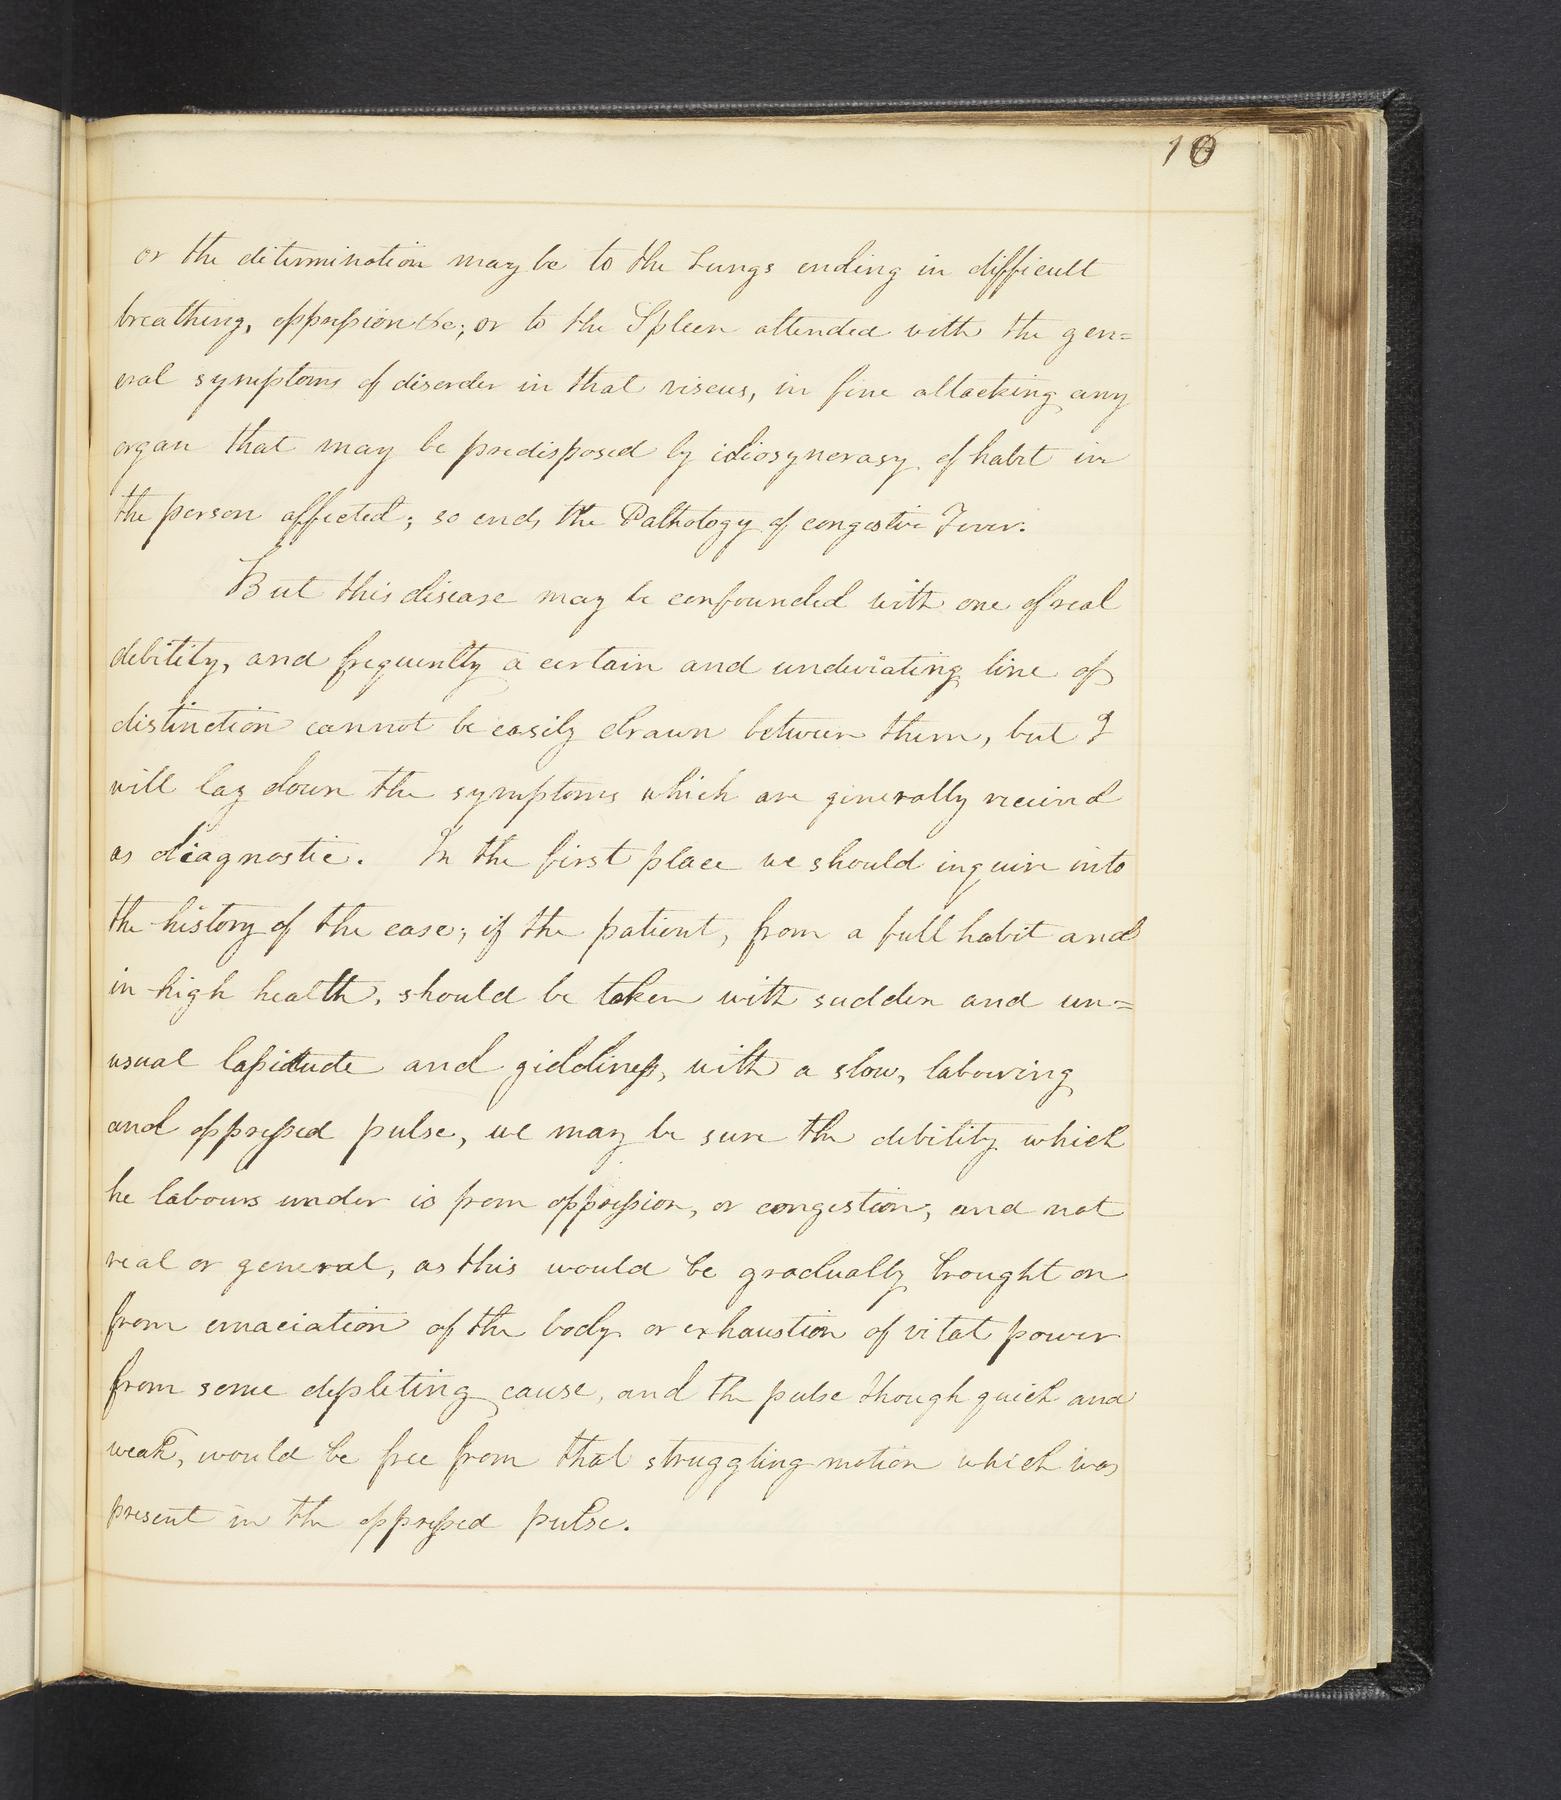 10
or the determination may be to the Lungs ending in difficult
breathing, oppression &c; or to the Spleen attended with the gen=
eral symptoms of disorder in that viscus, in fine attacking any
organ that may be predisposed by idiosyncrasy of habit in
the person affected; so ends the Pathology of congestive Fever.
But this disease may be confounded with one of real
debility, and frequently a certain and undeviating line of
distinction cannot be easily drawn between them, but I
will lay down the symptoms which are generally received
as diagnostic. In the first place we should inquire into
the history of the case; if the patient, from a full habit and
in high health, should be taken with sudden and un=
usual lassitude and giddiness, with a slow, labouring
and oppressed pulse, we may be sure the debility which
he labours under is from oppression, or congestion, and not
real or general, as this would be gradually brought on
from emaciation of the body or exhaustion of vital power
from some depleting cause, and the pulse though quick and
weak, would be free from that struggling motion which was
present in the oppressed pulse.